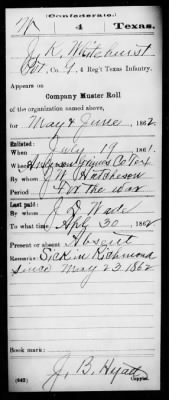 (Confederate.)
W 4 Texas.
J. K. Whitehurst
Pvt, Co. G, 4 Reg't Texas Infantry.
Appears on
Company Muster Roll
of the organization named above,
for May & June, 1862.
Enlisted:
When July 19, 1861.
Where Co Tex
By whom J. W. Hutcheson
Period For the war
Last paid:
By whom J. D. Wade
To what time Apl 30, 1862
Present or absent Absent
Remarks: Sick in Richmond
since May 23. 1862
Book mark:
J. B. Hyatt
(642) Copyist.